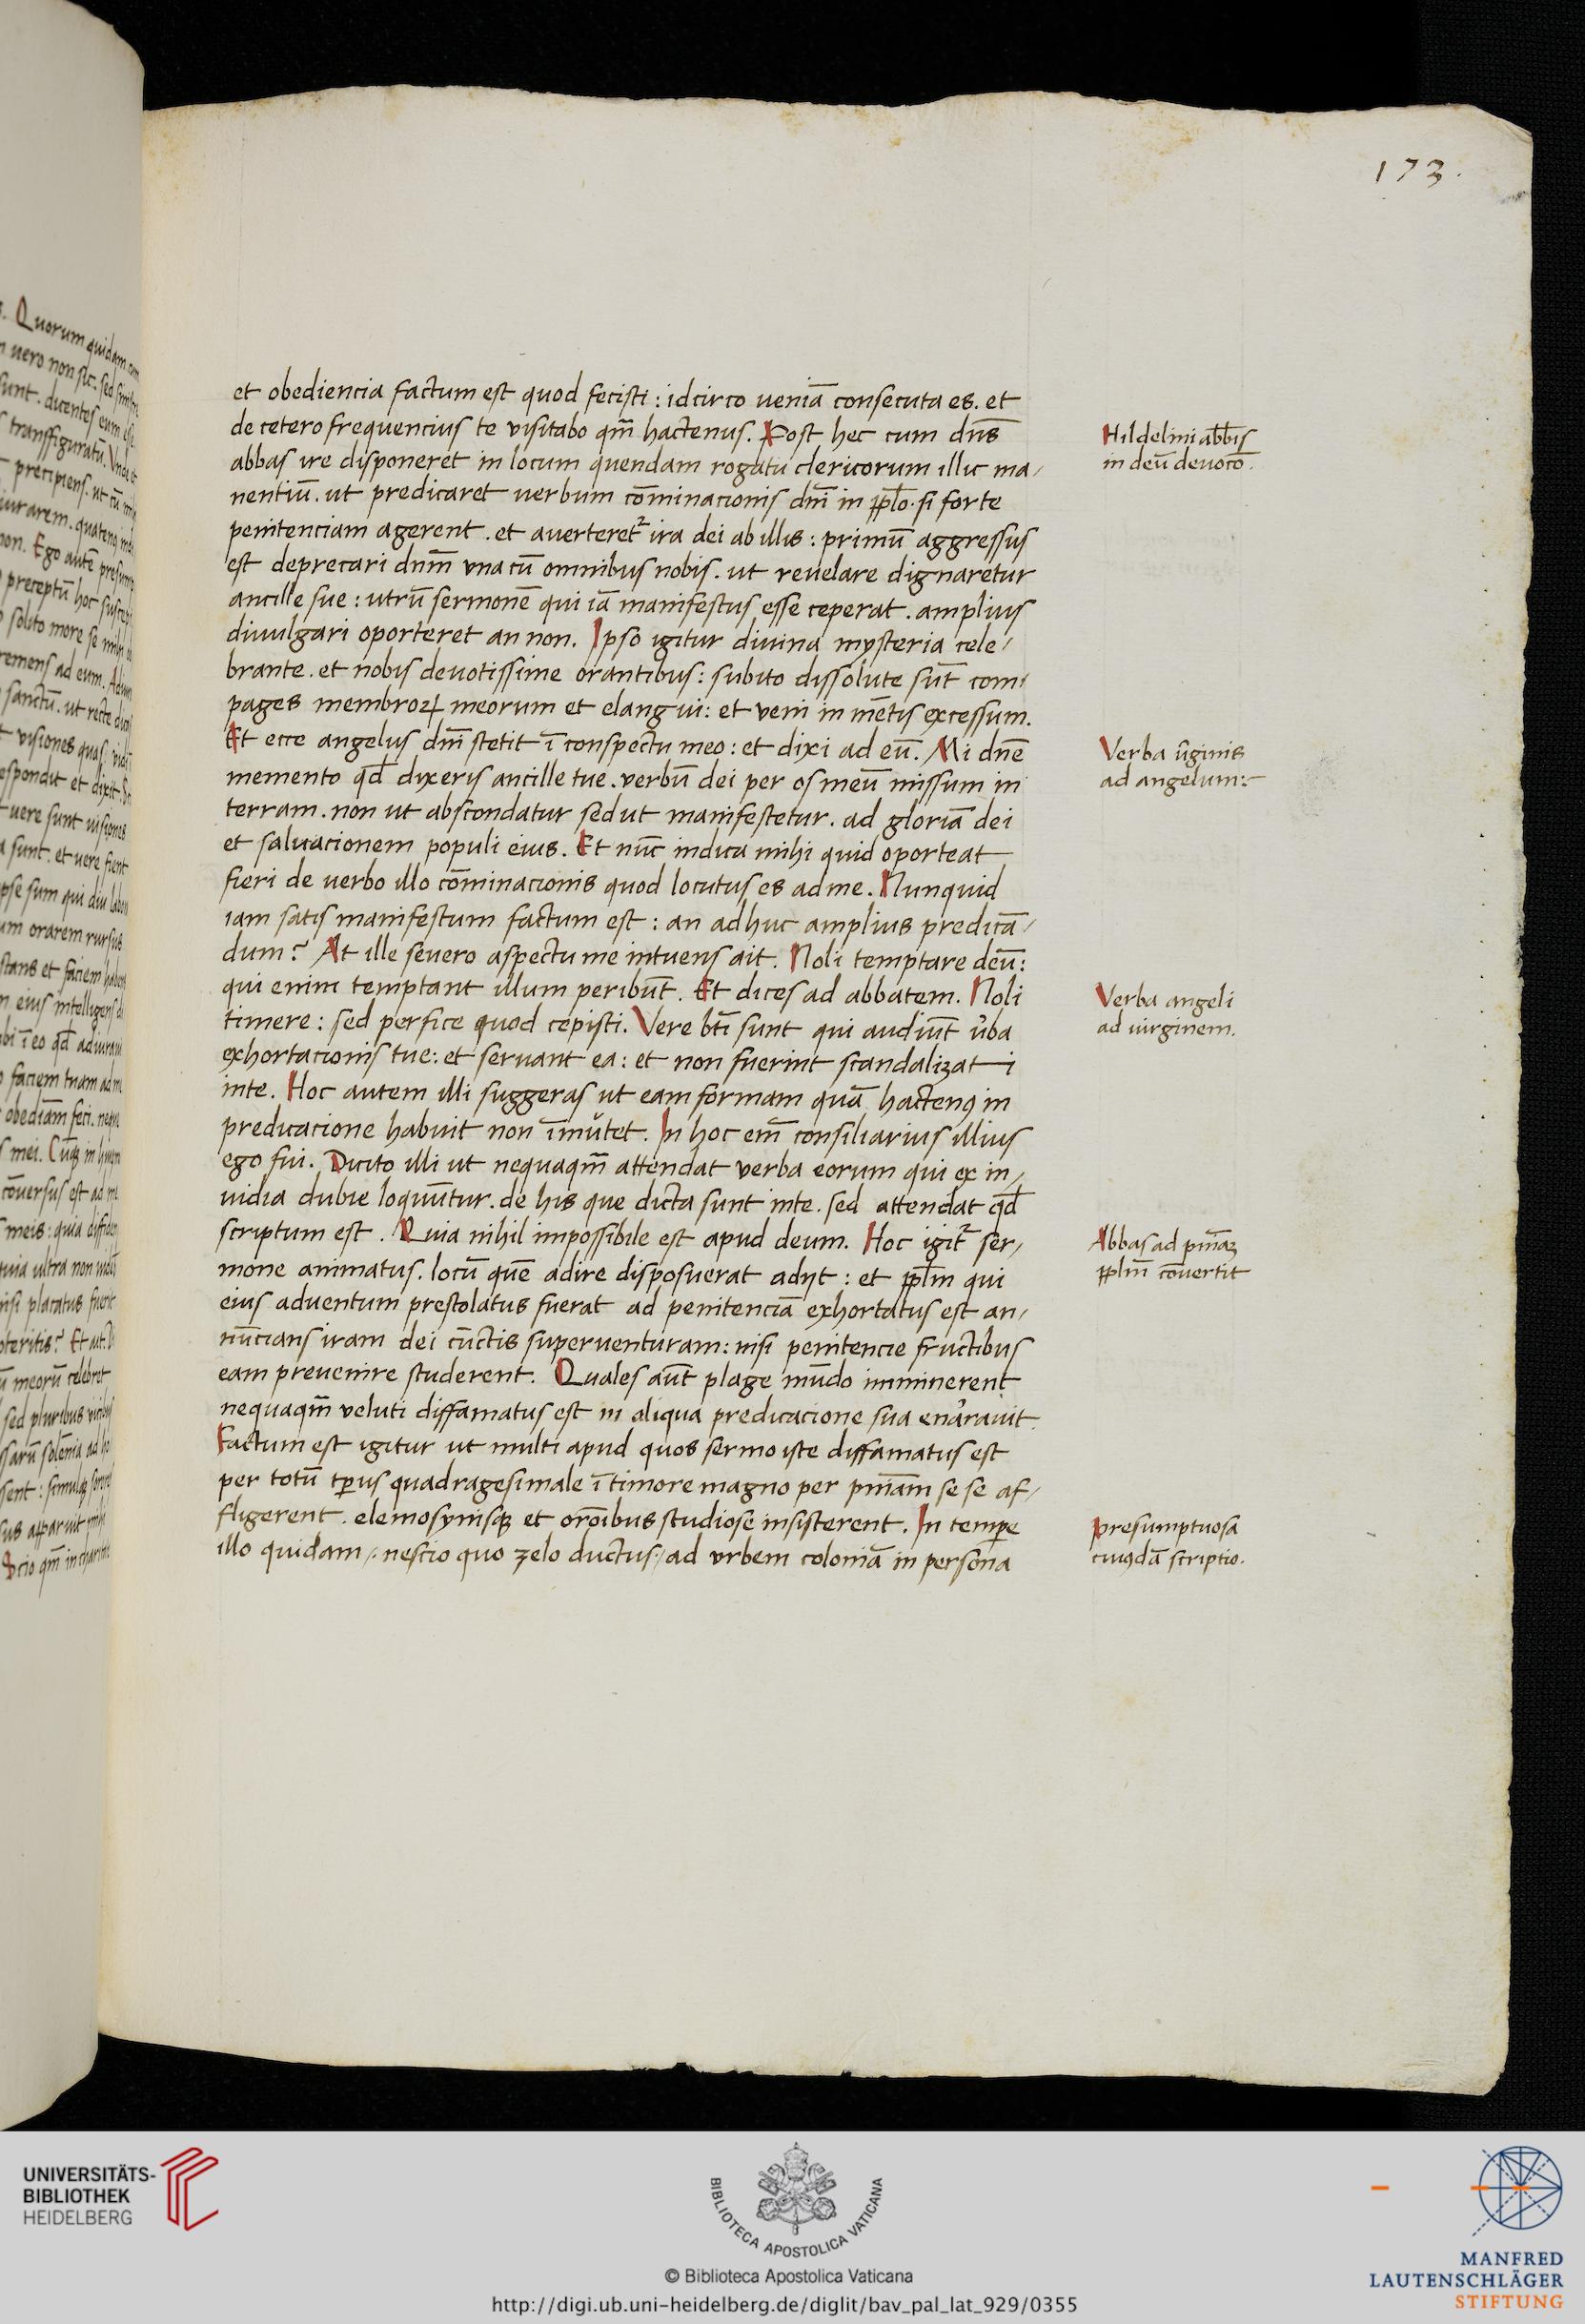 173.
et obediencia factum est quod fecisti : idcirco veniā consecuta es. et
de cetero frequencius te visitabo qm̄ hactenus. Post hec cum dn̄s
abbas ire disponeret in locum quendam rogatu clericorum illic ma-
nentiū. ut predicaret uerbum cōminacionis dn̄i in pp̄lo. si forte
penitenciam agerent. et auerteret᷑ ira dei ab illis : primū aggressus
est deprecari dn̄m vna cū omnibus nobis. ut reuelare dignaretur
ancille sue : utrū sermonē qui iā manifestus esse ceperat. amplius
diuulgari oporteret an non. Ipso igitur diuina mysteria cele-
brante. et nobis deuotissime orantibus : subito dissolute sūt com-
pages membroꝝ meorum et elangui : et veni in mētis excessum.
Et ecce angelus dn̄i stetit ī conspectu meo : et dixi ad eū. Mi dn̄e
memento qd̄ dixeris ancille tue. verbū dei per os meū missum in
terram. non ut abscondatur sed ut manifestetur. ad gloriā dei
et saluacionem populi eius. Et nūc indica mihi quid oporteat
fieri de verbo illo cōminacionis quod locutus es ad me. Nunquid
iam satis manifestum factum est : an adhuc amplius predicā-
dum? At ille seuero aspectu me intuens ait. Noli temptare deū :
qui enim temptant illum peribūt. Et dices ad abbatem. Noli
timere : sed perfice quod cepisti. Vere bt̄i sunt qui audiūt u̓ba
exhortacionis tue : et seruant ea : et non fuerint scandalizati
in te. Hoc autem illi suggeras ut eam formam quā hactenꝰ in
predicacione habuit non īmūtet. In hoc em̄ consiliarius illius
ego fui. Dicito illi ut nequaqm̄ attendat verba eorum qui ex in-
uidia dubie loquūtur. de his que dicta sunt in te. sed attendat qd̄
scriptum est. Quia nihil impossibile est apud deum. Hoc igit᷑ ser-
mone animatus. locū quē adire disposuerat adijt : et pp̄lm qui
eius aduentum prestolatus fuerat ad penitenciā exhortatus est an-
nūcians iram dei cūctis superventuram : nisi penitencie fructibus
eam preuenire studerent. Quales aūt plage mūdo imminerent
nequaqm̄ veluti diffamatus est in aliqua predicacione sua enarauit
Factum est igitur ut multi apud quos sermo iste diffamatus est
per totū tp̄us quadragesimale ī timore magno per pn̄iam se se af-
fligerent. elemosynisqꝫ et or̄oībus studiose insisterent. In tempe
illo quidam . nescio quo zelo ductus . ad vrbem coloniā in persona
Hildelmi abb̄is
in deū deuoc̄o.
Verba ūginis
ad angelum :
Verba angeli
ad uirginem.
Abbas ad pn̄iaꝫ
pp̄lm cōuertit
Presumptuosa
cuiꝰdā scriptio.
UNIVERSITÄTS-
BIBLIOTHEK
HEIDELBERG
BIBLIOTECA APOSTOLICA VATICANA
© Biblioteca Apostolica Vaticana
http://digi.ub.uni-heidelberg.de/diglit/bav_pal_lat_929/0355
MANFRED
LAUTENSCHLÄGER
STIFTUNG